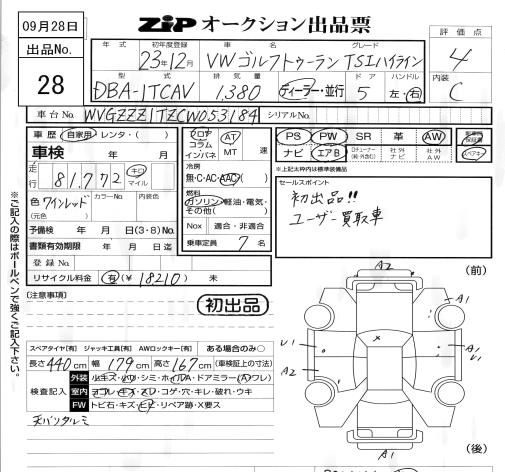 09月28日
ZIP オークション出品票
出品No.
28
年式 初年度登録 車名 グレード
23年12月 VWゴルフトゥーラン TSIハイライン
型式 排気量 ドア ハンドル
DBA-1TCAV 1,380 ディーラー・並行 5 左・右
評価点
4
内装
C
車台No. WVGZZZ1TZCW053184 シリアルNo.
車歴 自家用 レンタ・( )
車検 年 月
走行 81,772 キロ マイル
色 ワインレッド カラーNo. 内装色
(元色)
予備検 年 月 日(3・8)No.
書類有効期限 年 月 日迄
登録No.
リサイクル料金 有(¥18210) 未
フロア コラム インパネ AT MT 速
冷房
無・C・AC・AAC
燃料
ガソリン・軽油・電気・その他( )
Nox 適合・非適合
乗車定員 7 名
PS PW SR 革 AW
ナビ エアB 社外ナビ 社外AW
※上記太枠内は標準装備品
セールスポイント
初出品!!
ユーザー買取車
※ご記入の際はボールペンで強くご記入下さい。
[注意事項]
初出品
スペアタイヤ[有] ジャッキ工具[有] AWロックキー[有] ある場合のみ○
長さ 440 cm 幅 179 cm 高さ 167 cm (車検証上の寸法)
検査記入
外装
室内
FW トビ石・キズ・ヒビ・リペア跡・X要ス
天バリタルミ
(前)
A2
A1
U1
A1
U1
A2
A1
(後)